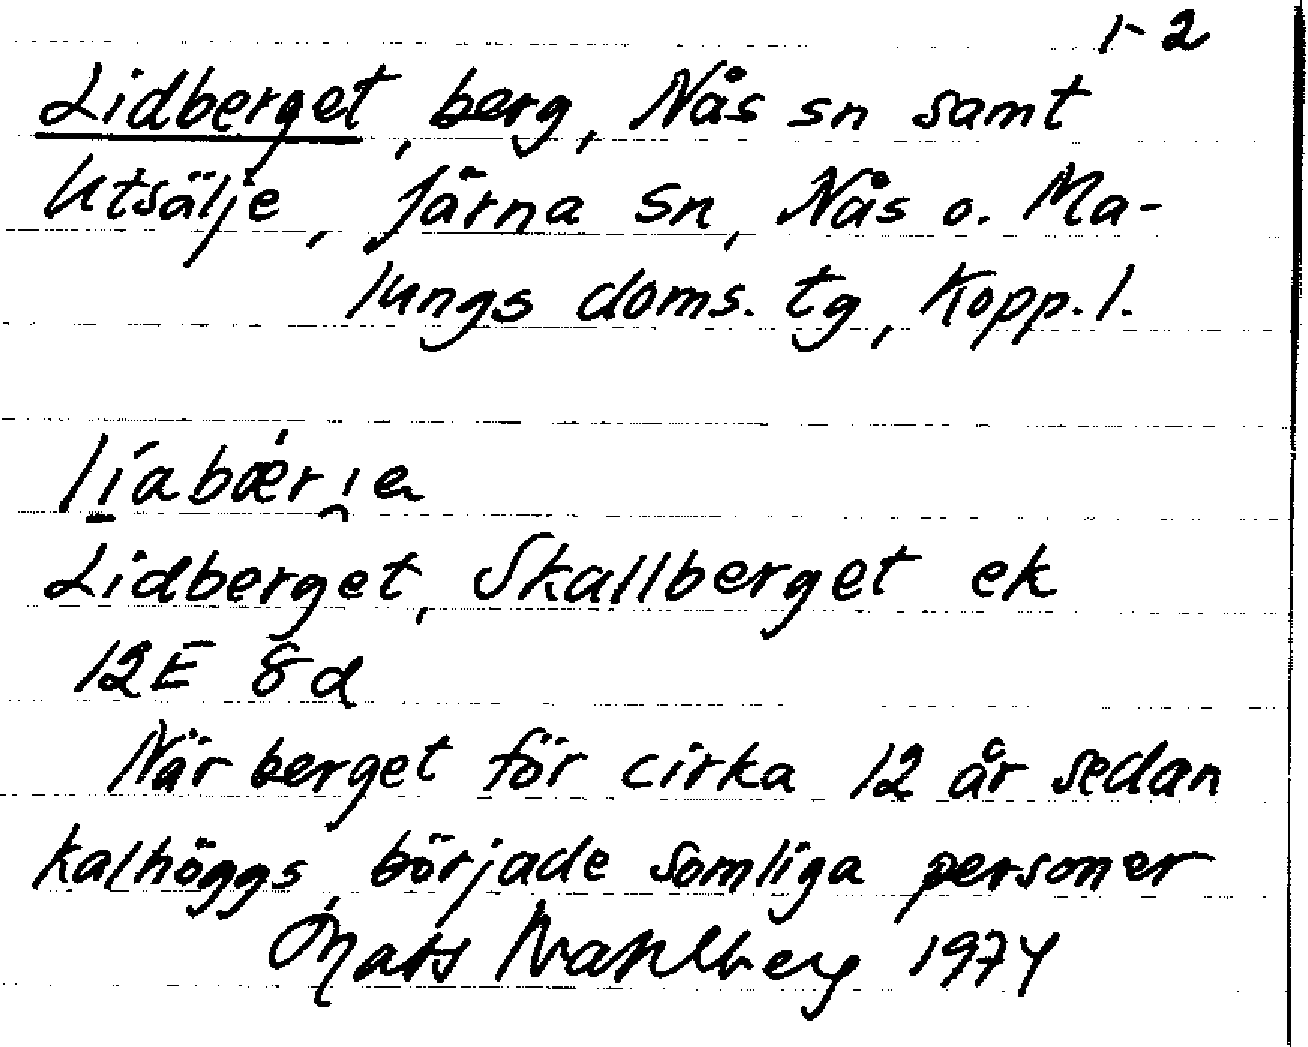 1-2
Lidberget, berg, Nås sn samt
Utsälje, Järna sn, Nås o. Ma-
lungs doms. tg, Kopp. l.
líabǽri̯a
Lidberget, Skallberget ek
12E 8d
När berget för cirka 12 år sedan
kalhöggs började somliga personer
Mats Wahlberg 1974